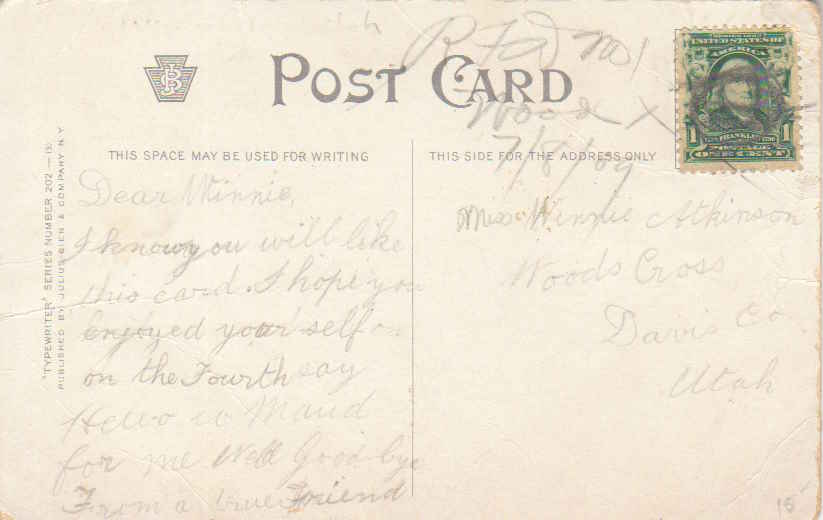 RFD No 1
POST CARD
Wood X
7/8/09
THIS SPACE MAY BE USED FOR WRITING
THIS SIDE FOR THE ADDRESS ONLY
SERIES 1902
UNITED STATES OF
AMERICA
FRANKLIN
1 1
POSTAGE
ONE CENT
"TYPEWRITER" SERIES NUMBER 202 —
PUBLISHED BY JULIUS BIEN & COMPANY N.Y.
Dear Winnie,
I know you will like
this card. I hope you
enjoyed your self
on the Fourth say
Hello to Maud
for me Well Good bye
From a true Friend
Miss Winnie Atkinson
Woods Cross
Davis Co.
Utah